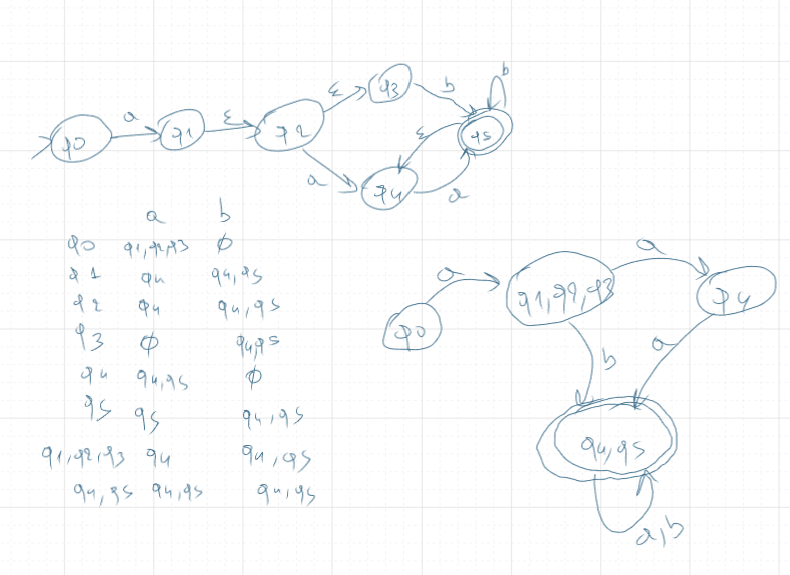 b
q3
ε
b
a
ε
q0
q1
q2
ε
q5
a
q4
a
a b
q0 q1,q2,q3 ϕ
q1 q4 q4,q5
q2 q4 q4,q5
q3 ϕ q4,q5
q4 q4,q5 ϕ
q5 q5 q4,q5
q1,q2,q3 q4 q4,q5
q4,q5 q4,q5 q4,q5
a
a
q1,q2,q3
q4
q0
a
b
q4,q5
a,b